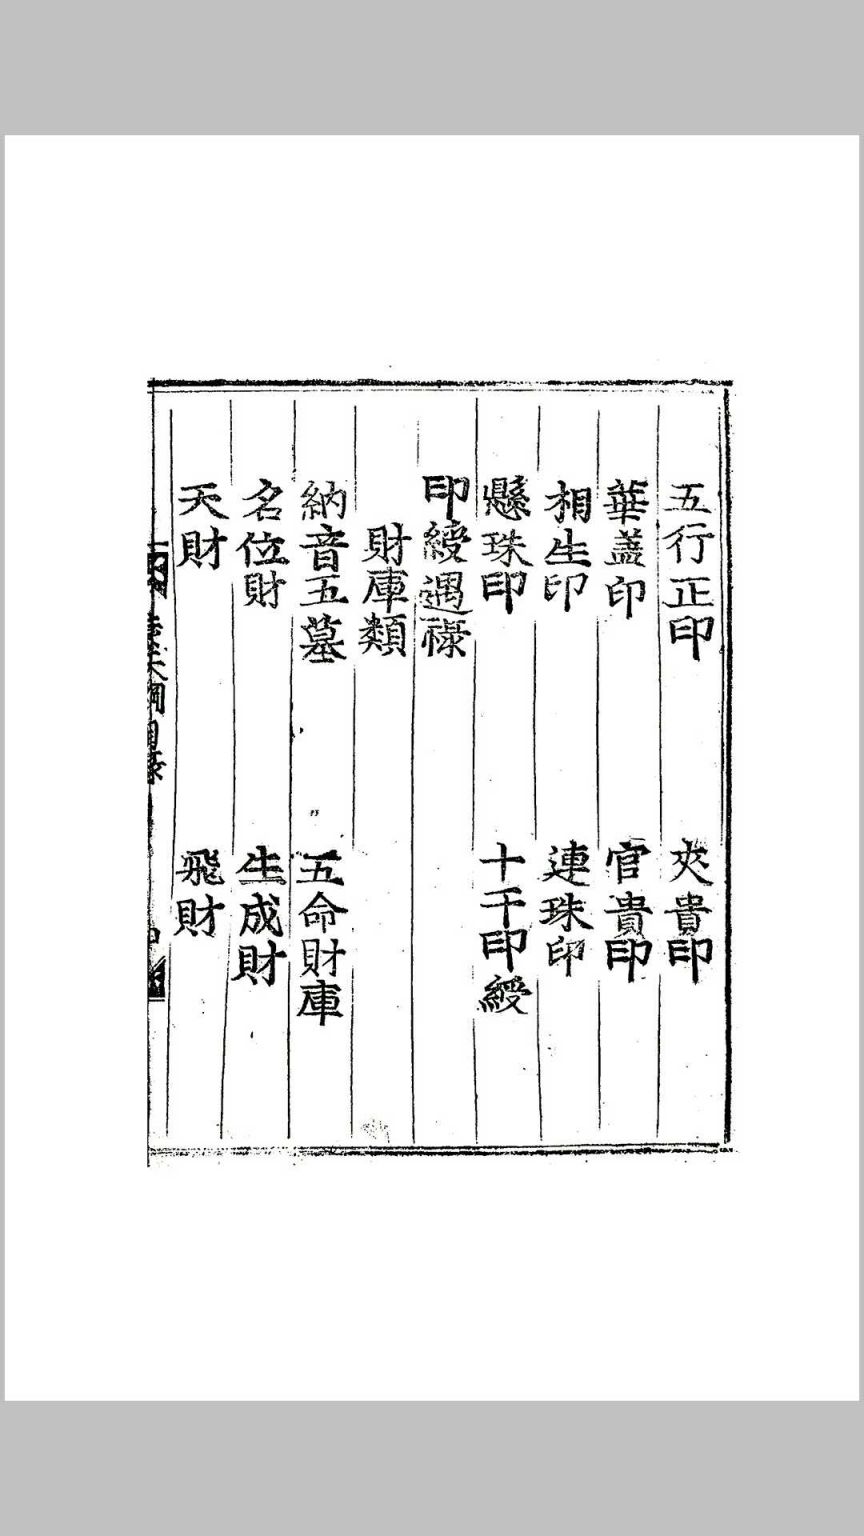 五行正印　夾貴印
華盖印　官貴印
相生印　連珠印
懸珠印　十干印綬
印綬遇祿
財庫類
納音五墓　五命財庫
名位財　生成財
天財　飛財
大綱目錄